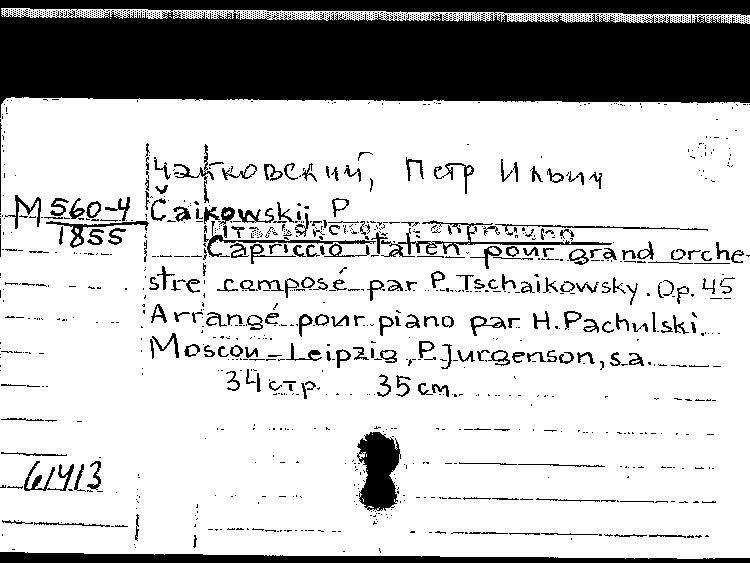 Чайковский, Петр Ильич
М 560-4
1855
Čaikowskij P
Итальянское каприччио
Capriccio italien pour grand orche-
stre composé par P. Tschaikowsky. Op. 45
Arrangé pour piano par H. Pachulski.
Moscou - Leipzig, P. Jurgenson, s.a.
34 стр. 35 см.
61413